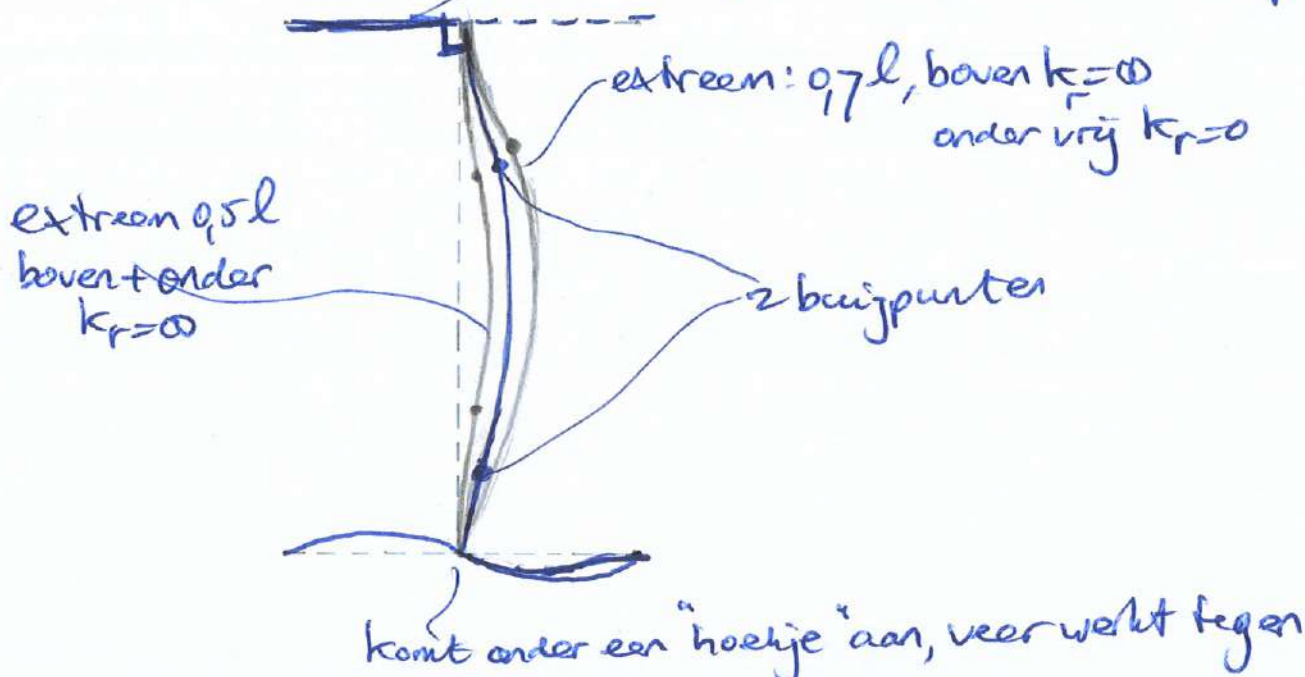 extreem: 0,7 l, boven kr=∞
onder vrij kr=0
extreem 0,5 l
boven + onder
kr=∞
2 buigpunten
komt onder een "hoekje" aan, veer werkt tegen